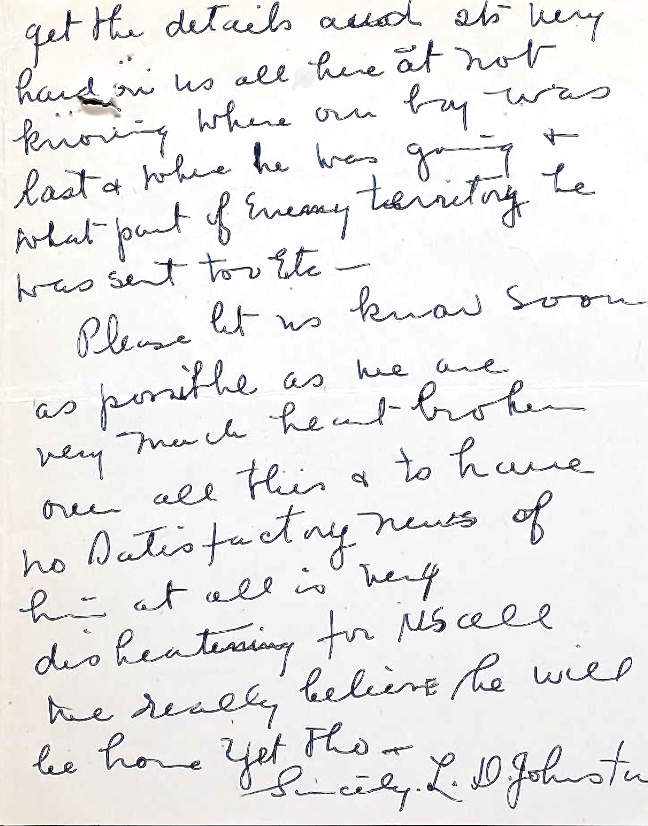 get the details and its very
hard on us all here at not
knowing where our boy was
last & where he was going &
what part of Enemy territory he
was sent too Etc —
Please let us know soon
as possible as we are
very much heart-broken
over all this & to have
no Satisfactory news of
him at all is very
disheartening for us all
We really believe he will
be home yet tho —
Sincely. L. D. Johnston